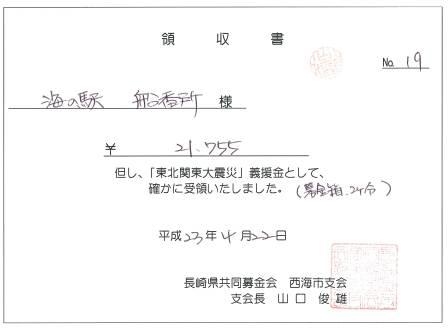 領 収 書
No. 19
海の駅 船番所 様
¥ 21.755
但し、「東北関東大震災」義援金として、
確かに受領いたしました。(募金箱、2ヶ分)
平成23年4月22日
長崎県共同募金会 西海市支会
支会長 山 口 俊 雄